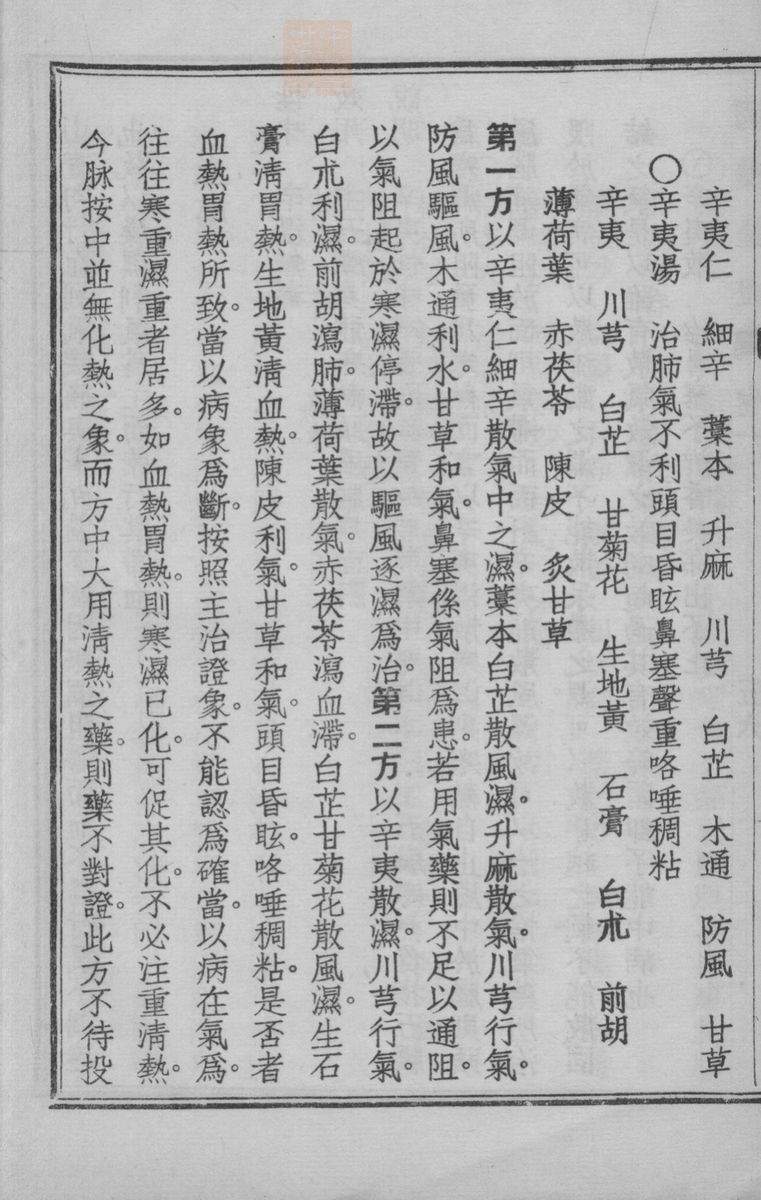 辛夷仁　細辛　藁本　升麻　川芎　白芷　木通　防風　甘草
○辛夷湯　治肺氣不利頭目昏眩鼻塞聲重咯唾稠粘
辛夷　川芎　白芷　甘菊花　生地黃　石膏　白朮　前胡
薄荷葉　赤茯苓　陳皮　炙甘草
第一方以辛夷仁細辛散氣中之濕。藁本白芷散風濕。升麻散氣。川芎行氣。
防風驅風。木通利水。甘草和氣。鼻塞係氣阻爲患。若用氣藥則不足以通阻。
以氣阻起於寒濕停滯。故以驅風逐濕爲治。第二方以辛夷散濕。川芎行氣。
白朮利濕。前胡瀉肺。薄荷葉散氣。赤茯苓瀉血滯。白芷甘菊花散風濕。生石
膏淸胃熱。生地黃淸血熱。陳皮利氣。甘草和氣。頭目昏眩。咯唾稠粘。是否者
血熱胃熱所致。當以病象爲斷。按照主治證象。不能認爲確當。以病在氣。爲
往往寒重濕重者居多。如血熱胃熱。則寒濕已化。可促其化。不必注重淸熱。
今脉按中並無化熱之象。而方中大用淸熱之藥。則藥不對證。此方不待投